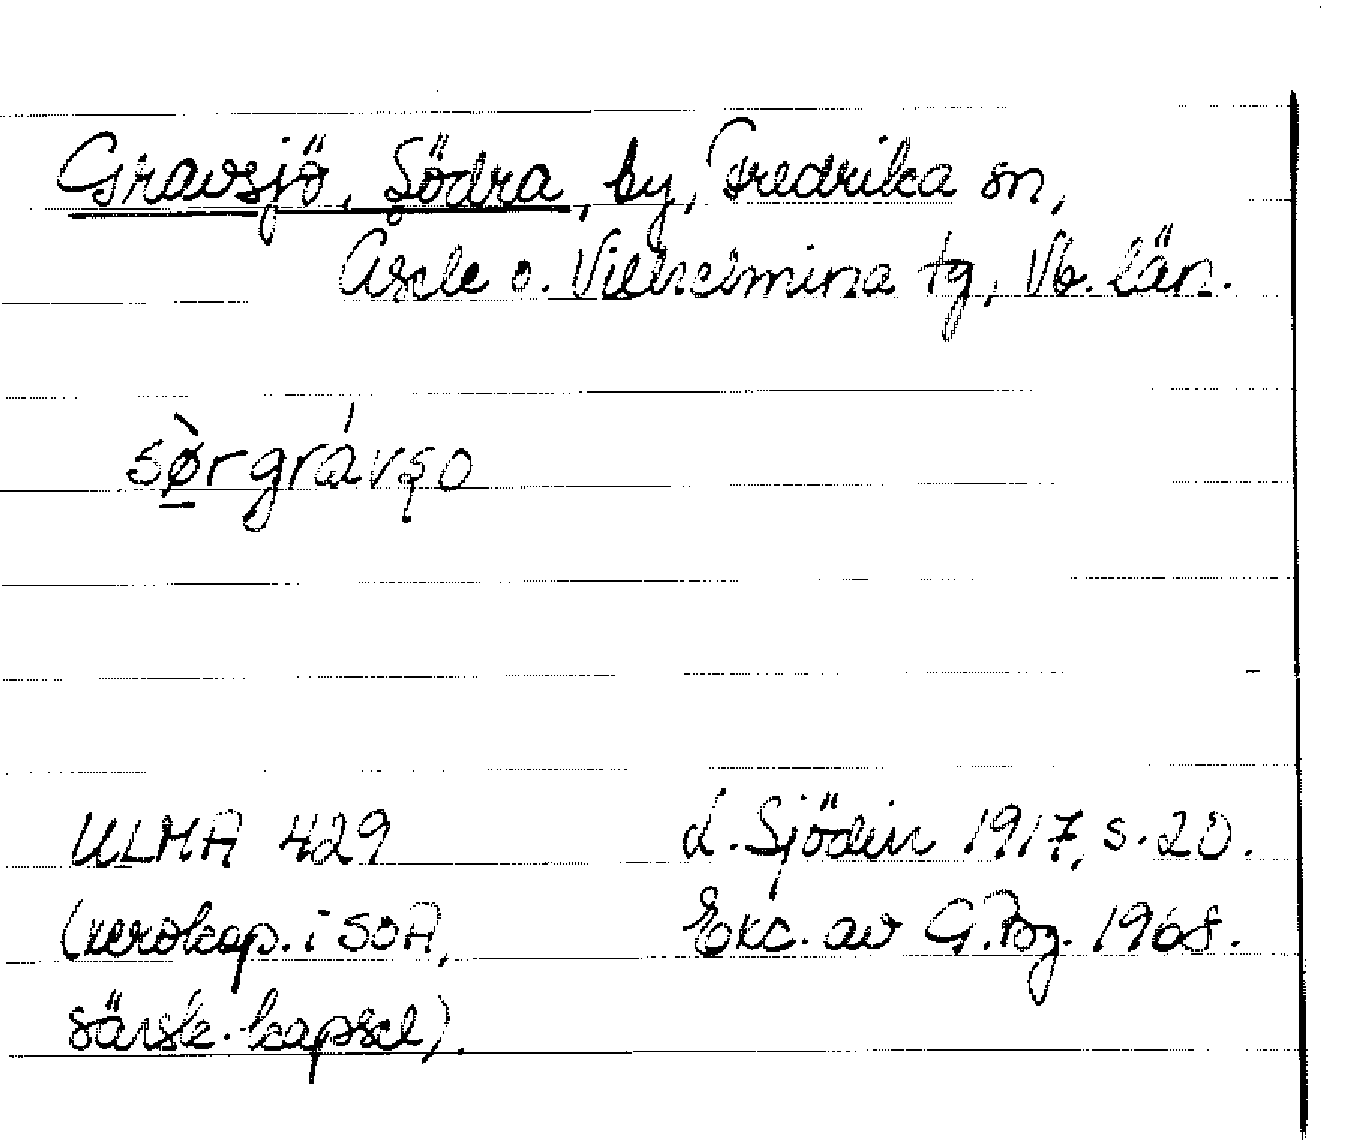 Gravsjö, Södra, by, Fredrika sn,
Åsele o. Vilhelmina tg, Vb. län.
sø̲̀rgrávşo
ULMA 429
L. Sjödin 1917, s. 20.
(xerokop. i SOA,
Exc. av G.Bg. 1968.
särsk. kapsel).